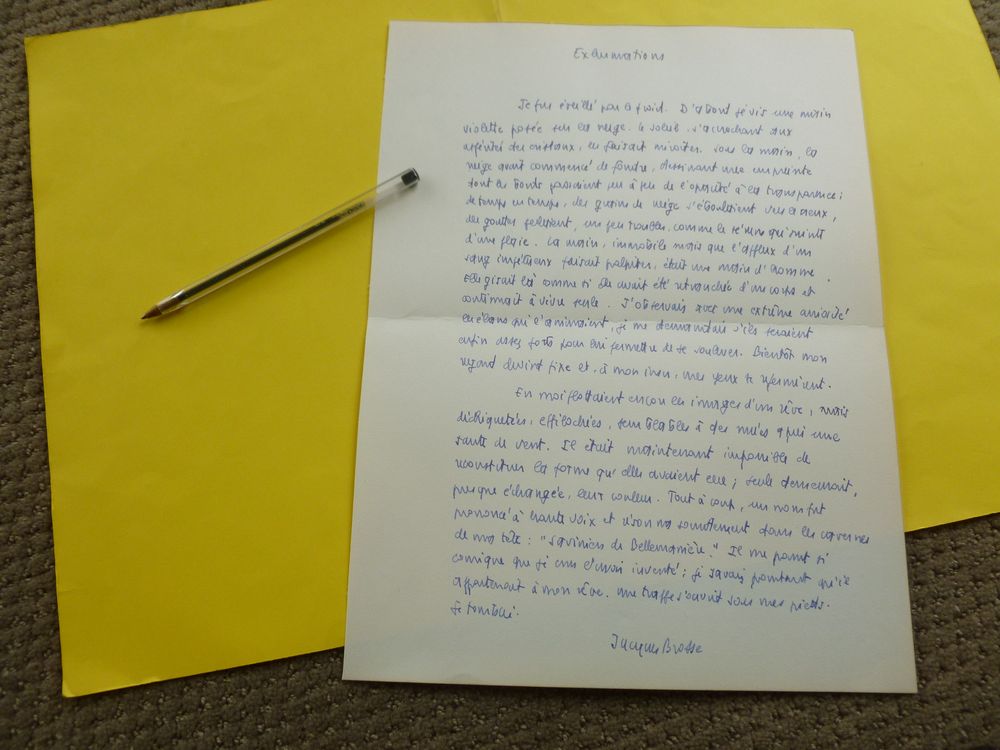 Exhumations
Je fus éveillé par le froid. D'abord je vis une main
violette posée sur la neige. Le soleil, s'accrochant aux
aspérités des cristaux, les faisait miroiter. Sous la main, la
neige avait commencé de fondre, dessinant une empreinte
dont les bords passaient peu à peu de l'opacité à la transparence ;
de temps en temps, des grains de neige s'éboulaient vers le creux,
des gouttes perlaient, un peu troubles, comme le sérum qui suinte
d'une plaie. La main, immobile mais que l'afflux d'un
sang impétueux faisait palpiter, était une main d'homme.
Elle gisait là comme si elle avait été retranchée d'un corps et
continuait à vivre seule. J'observais avec une extrême anxiété
les élans qui l'animaient, je me demandais s'ils seraient
enfin assez forts pour lui permettre de se soulever. Bientôt mon
regard devint fixe et, à mon insu, mes yeux se refermèrent.
En moi flottaient encore les images d'un rêve, mais
déchiquetées, effilochées, semblables à des nuées après une
saute de vent. Il était maintenant impossible de
reconstituer la forme qu'elles avaient eue ; seule demeurait,
presque inchangée, leur couleur. Tout à coup, un nom fut
prononcé à haute voix et résonna sourdement dans les cavernes
de ma tête : "Savinien de Bellemanière." Il me parut si
comique que je crus l'avoir inventé ; je savais pourtant qu'il
appartenait à mon rêve. Une trappe s'ouvrit sous mes pieds.
Je tombai.
Jacques Brosse